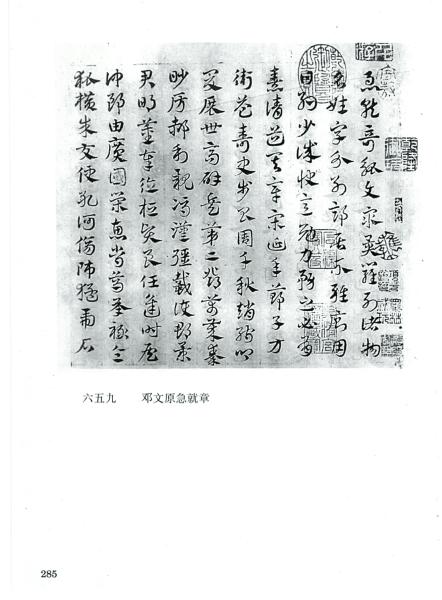 急就奇觚與众異羅列諸物
名姓字分別部居不雜廁用
日約少誠快意勉力務之必有
憙請道其章宋延年鄭子方
衛益壽史步昌周千秋趙孺卿
爰展世高辟兵第二鄧萬歲秦
眇房郝利親馮漢彊戴護郡景
君明董奉德桓賢良任逢時侯
仲郎由廣國榮惠常烏承祿令
狐橫朱交便孔何傷師猛虎石
六五九 邓文原急就章
285